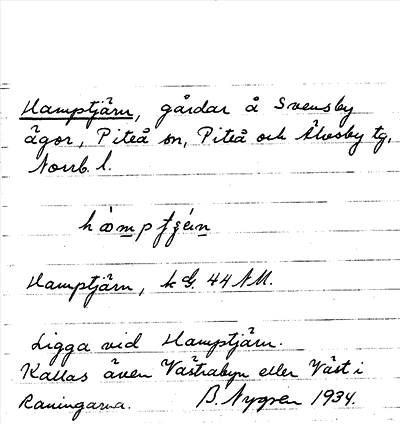 Hamptjärn, gårdar å Svensby
ägor, Piteå sn, Piteå och Älvsby tg,
Norrb. l.
Hamptjärn, k G, 44 NM.
Ligga vid Hamptjärn.
Kallas även Västrabyn eller Väst i
Raningarna. B. Nygren 1934.